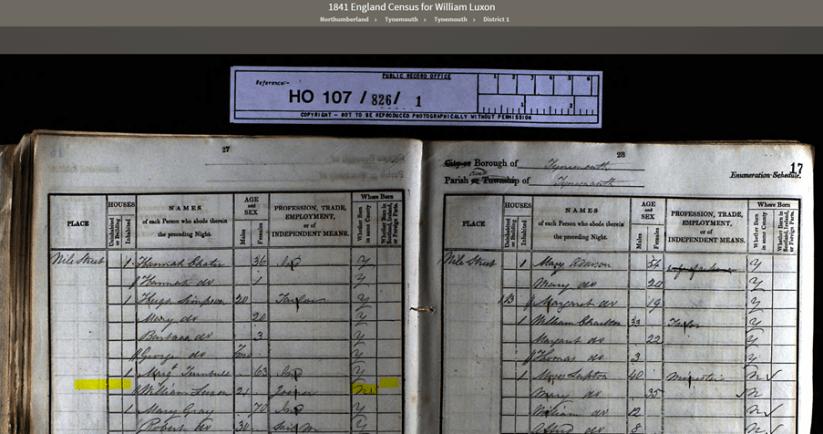 1841 England Census for William Luxon
Northumberland › Tynemouth › Tynemouth › District 1
PUBLIC RECORD OFFICE
Reference:-
HO 107 / 826 / 1
COPYRIGHT - NOT TO BE REPRODUCED PHOTOGRAPHICALLY WITHOUT PERMISSION
27
PLACE
HOUSES
Uninhabited or Building
Inhabited
NAMES
of each Person who abode therein
the preceding Night.
AGE
and
SEX
Males
Females
PROFESSION, TRADE,
EMPLOYMENT,
or of
INDEPENDENT MEANS.
Where Born
Whether Born in same County
Whether Born in Scotland, Ireland, or Foreign Parts.
Nile Street 1 Hannah 36 Y
Hannah do 1 Y
1 Hugh Simpson 20 Taylor Y
Mary do 20 Y
Barbara do 3 Y
George do Y
1 Margt Turnbull 63 Y
William Luxon 21 N
1 Mary Gray 70 Y
Robert do 30 Y
28
17
City or Borough of Tynemouth
Parish or Township of Tynemouth
Enumeration Schedule.
PLACE
HOUSES
Uninhabited or Building
Inhabited
NAMES
of each Person who abode therein
the preceding Night.
AGE
and
SEX
Males
Females
PROFESSION, TRADE,
EMPLOYMENT,
or of
INDEPENDENT MEANS.
Where Born
Whether Born in same County
Whether Born in Scotland, Ireland, or Foreign Parts.
Nile Street 1 Mary 54 Y
Mary do 20 Y
Margaret do 19 Y
1 William Charlton 33 Y
Margaret do 22 Y
Thomas do 3 Y
1 40 N
Mary do 35 N
William do 12 N
Alfred do 8 N